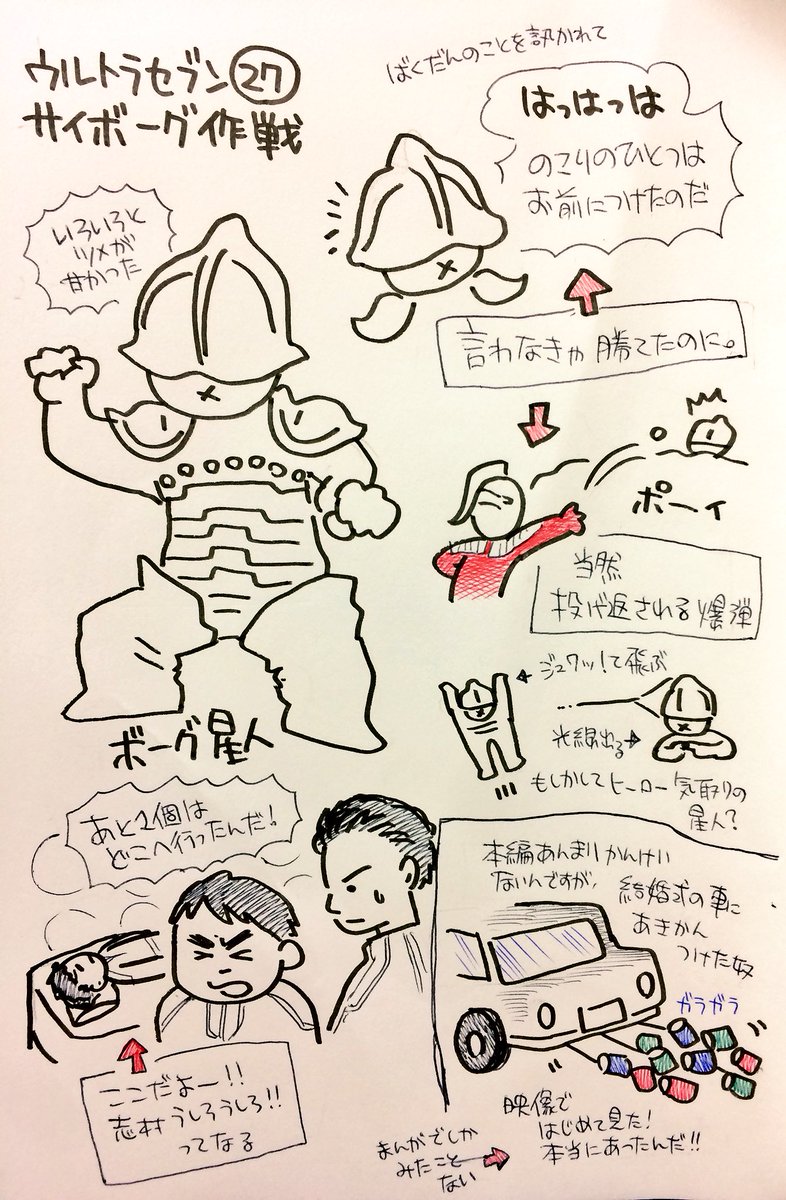 ウルトラセブン㉗
サイボーグ作戦
ばくだんのことを訊かれて
はっはっは
のこりのひとつは
お前につけたのだ
いろいろと
ツメが
甘かった
言わなきゃ勝てたのに。
ポーイ
当然
投げ返される爆弾
ボーグ星人
ジュワッ!て飛ぶ
光線出る
もしかしてヒーロー気取りの
星人?
あと1個は
どこへ行ったんだ!
ここだよー!!
志村うしろうしろ!!
ってなる
本編あんまりかんけい
ないんですが、
結婚式の車に
あきかん
つけた奴
ガラガラ
映像で
はじめて見た!
本当にあったんだ!!
まんがでしか
みたこと
ない